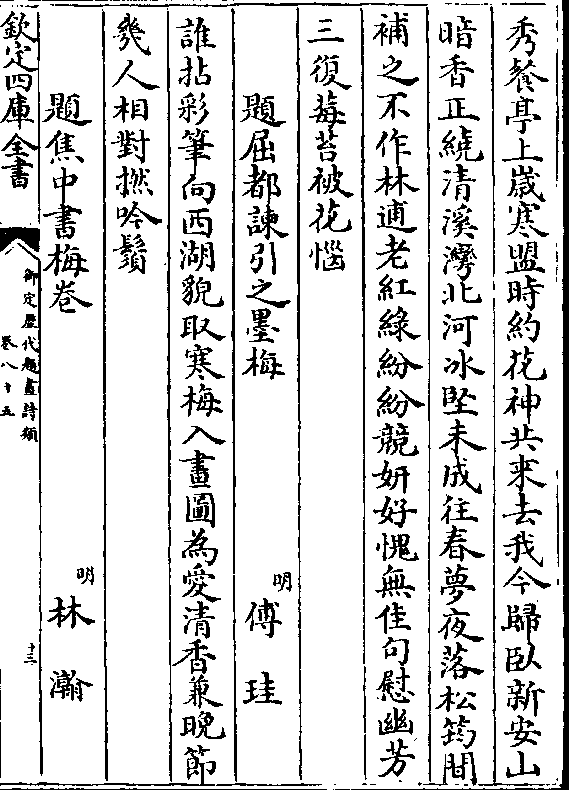 秀餐亭上嵗寒盟時約花神共来去我今歸臥新安山
暗香正繞清溪灣北河冰堅未成往春夢夜落松筠間
補之不作林逋老紅綠紛紛競妍好愧無佳句慰幽芳
三復莓苔被花惱
題屈都諫引之墨梅
明
傅珪
誰拈彩筆向西湖貌取寒梅入畫圖為愛清香兼晚節
幾人相對撚吟鬚
題焦中書梅卷
明
林瀚
欽定四庫全書
御定歴代題畫詩類
卷八十五
十三